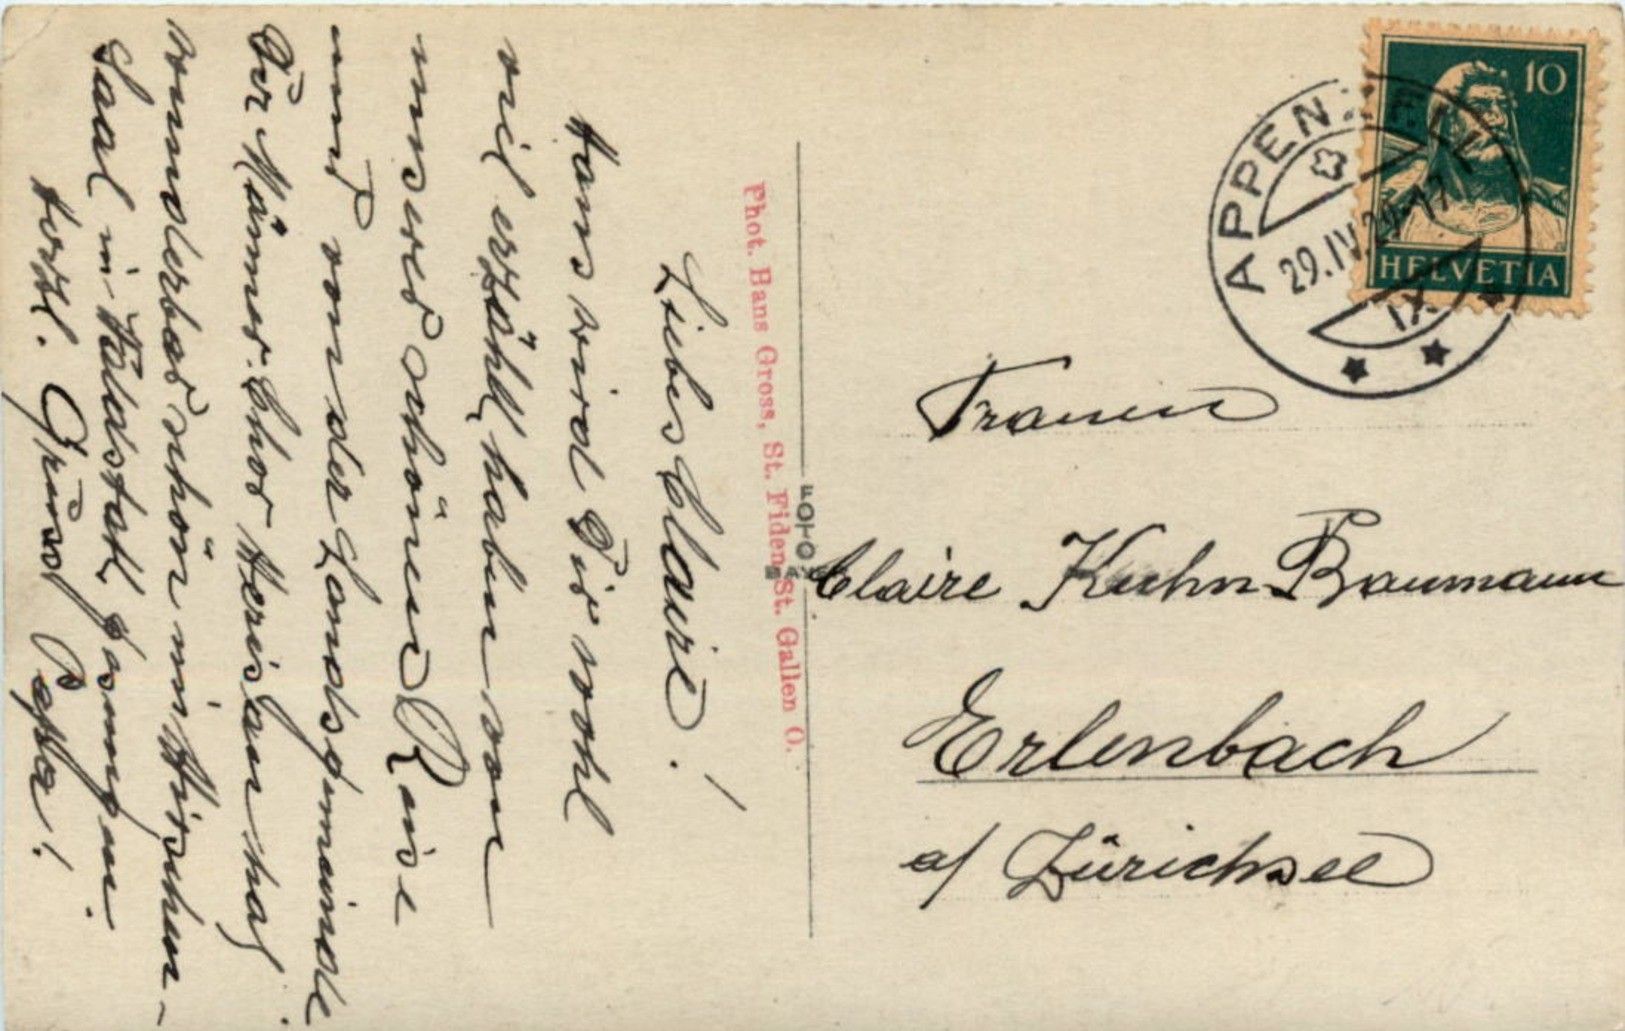 Liebes Claire!
Hans wird Dir wohl
viel erzählt haben von
unserer schönen Reise
und von der Landsgemeinde.
Der Männer-Chor Herisau hat
wunderbar schön im Hirschen-
Saal in Waldstatt gesungen.
Herzl. Grüsse Papa!
Phot. Hans Gross, St. Fiden-St. Gallen O.
APPENZELL
29.IV.
IX
10
HELVETIA
Frauen
Claire Kuhn-Baumann
Erlenbach
a/ Zürichsee